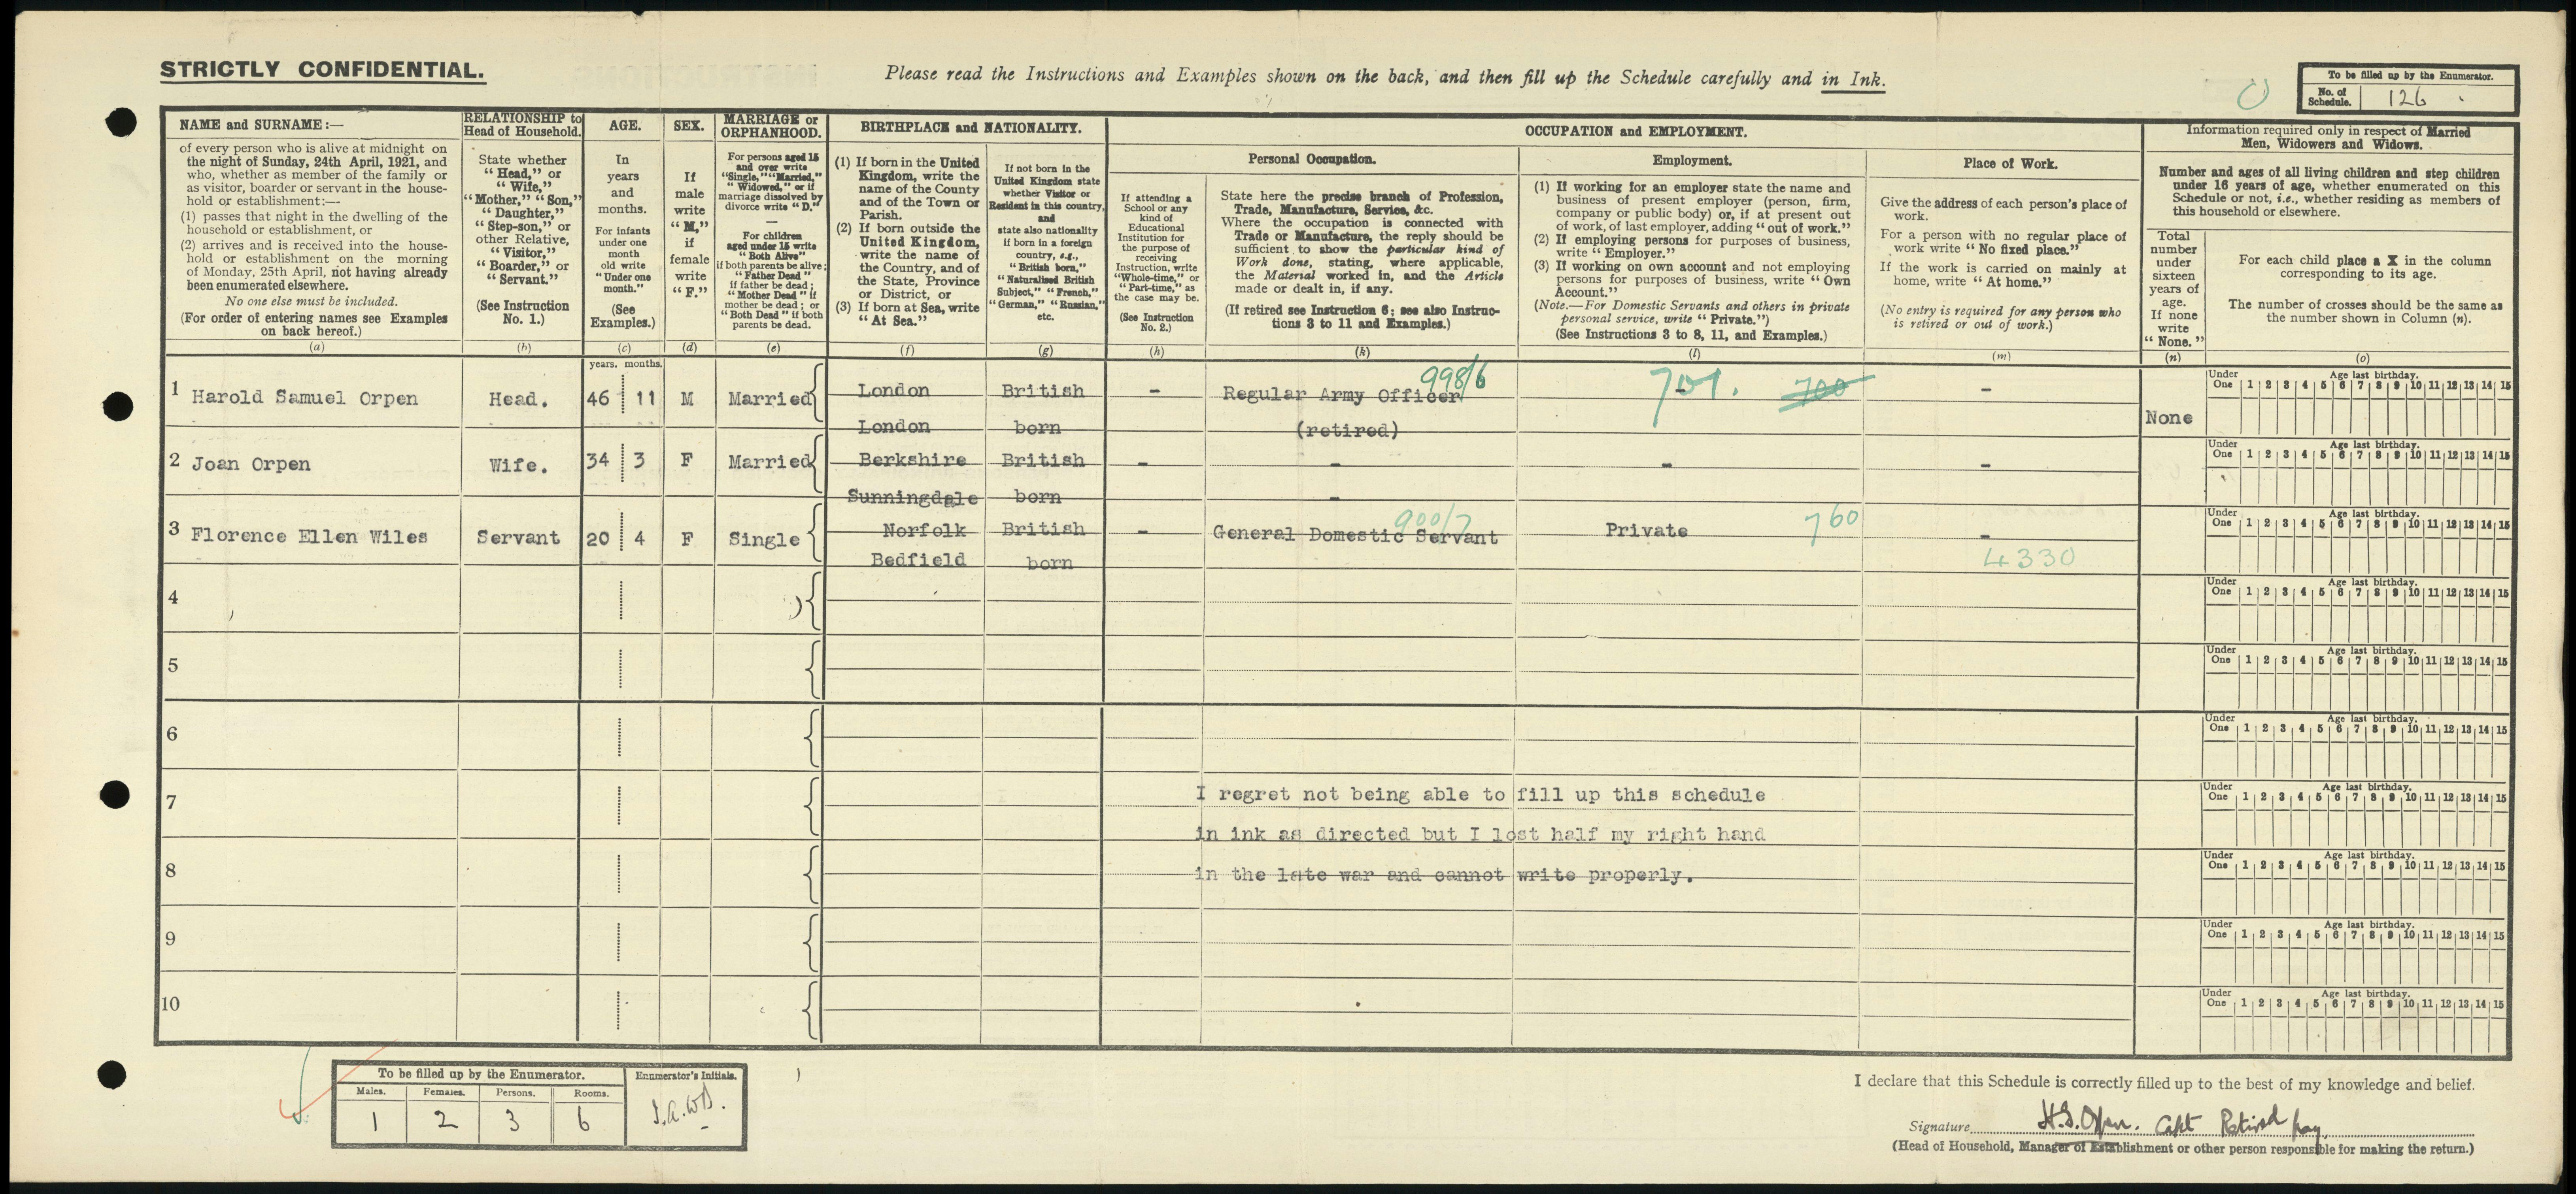 STRICTLY CONFIDENTIAL.
Please read the Instructions and Examples shown on the back, and then fill up the Schedule carefully and in Ink.
To be filled up by the Enumerator.
No. of Schedule. 126
NAME and SURNAME:—
of every person who is alive at midnight on
the night of Sunday, 24th April, 1921, and
who, whether as member of the family or
as visitor, boarder or servant in the house-
hold or establishment:—
(1) passes that night in the dwelling of the
household or establishment, or
(2) arrives and is received into the house-
hold or establishment on the morning
of Monday, 25th April, not having already
been enumerated elsewhere.
No one else must be included.
(For order of entering names see Examples
on back hereof.)
(a)
RELATIONSHIP to
Head of Household.
State whether
"Head," or
"Wife,"
"Mother," "Son,"
"Daughter,"
"Step-son," or
other Relative,
"Visitor,"
"Boarder," or
"Servant."
(See Instruction
No. 1.)
(b)
AGE.
In
years
and
months.
For infants
under one
month
old write
"Under one
month."
(See
Examples.)
(c)
SEX.
If
male
write
"M,"
if
female
write
"F."
(d)
MARRIAGE or
ORPHANHOOD.
For persons aged 15
and over write
"Single," "Married,"
"Widowed," or if
marriage dissolved by
divorce write "D."
—
For children
aged under 15 write
"Both Alive"
if both parents be alive;
"Father Dead"
if father be dead;
"Mother Dead" if
mother be dead; or
"Both Dead" if both
parents be dead.
(e)
BIRTHPLACE and NATIONALITY.
(1) If born in the United
Kingdom, write the
name of the County
and of the Town or
Parish.
(2) If born outside the
United Kingdom,
write the name of
the Country, and of
the State, Province
or District, or
(3) If born at Sea, write
"At Sea."
(f)
If not born in the
United Kingdom state
whether Visitor or
Resident in this country,
and
state also nationality
if born in a foreign
country, e.g.,
"British born,"
"Naturalised British
Subject," "French,"
"German," "Russian,"
etc.
(g)
OCCUPATION and EMPLOYMENT.
If attending a
School or any
kind of
Educational
Institution for
the purpose of
receiving
Instruction, write
"Whole-time," or
"Part-time," as
the case may be.
(See Instruction
No. 2.)
(h)
Personal Occupation.
State here the precise branch of Profession,
Trade, Manufacture, Service, &c.
Where the occupation is connected with
Trade or Manufacture, the reply should be
sufficient to show the particular kind of
Work done, stating, where applicable,
the Material worked in, and the Article
made or dealt in, if any.
(If retired see Instruction 6; see also Instruc-
tions 3 to 11 and Examples.)
(k)
Employment.
(1) If working for an employer state the name and
business of present employer (person, firm,
company or public body) or, if at present out
of work, of last employer, adding "out of work."
(2) If employing persons for purposes of business,
write "Employer."
(3) If working on own account and not employing
persons for purposes of business, write "Own
Account."
(Note.—For Domestic Servants and others in private
personal service, write "Private.")
(See Instructions 3 to 8, 11, and Examples.)
(l)
Place of Work.
Give the address of each person's place of
work.
For a person with no regular place of
work write "No fixed place."
If the work is carried on mainly at
home, write "At home."
(No entry is required for any person who
is retired or out of work.)
(m)
Information required only in respect of Married
Men, Widowers and Widows.
Number and ages of all living children and step children
under 16 years of age, whether enumerated on this
Schedule or not, i.e., whether residing as members of
this household or elsewhere.
Total
number
under
sixteen
years of
age.
If none
write
"None."
(n)
For each child place a X in the column
corresponding to its age.
The number of crosses should be the same as
the number shown in Column (n).
(o)
years. months.
1 Harold Samuel Orpen Head. 46 11 M Married London British - Regular Army Officer 998/6 - 701. 700 - None
London born (retired)
Under One Age last birthday. 1 2 3 4 5 6 7 8 9 10 11 12 13 14 15
2 Joan Orpen Wife. 34 3 F Married Berkshire British - - - -
Sunningdale born -
Under One Age last birthday. 1 2 3 4 5 6 7 8 9 10 11 12 13 14 15
3 Florence Ellen Wiles Servant 20 4 F Single Norfolk British - General Domestic Servant 900/7 Private 760 -
Bedfield born 4330
Under One Age last birthday. 1 2 3 4 5 6 7 8 9 10 11 12 13 14 15
4
Under One Age last birthday. 1 2 3 4 5 6 7 8 9 10 11 12 13 14 15
5
Under One Age last birthday. 1 2 3 4 5 6 7 8 9 10 11 12 13 14 15
6
Under One Age last birthday. 1 2 3 4 5 6 7 8 9 10 11 12 13 14 15
7 I regret not being able to fill up this schedule
in ink as directed but I lost half my right hand
Under One Age last birthday. 1 2 3 4 5 6 7 8 9 10 11 12 13 14 15
8 in the late war and cannot write properly.
Under One Age last birthday. 1 2 3 4 5 6 7 8 9 10 11 12 13 14 15
9
Under One Age last birthday. 1 2 3 4 5 6 7 8 9 10 11 12 13 14 15
10
Under One Age last birthday. 1 2 3 4 5 6 7 8 9 10 11 12 13 14 15
To be filled up by the Enumerator.
Males. Females. Persons. Rooms.
1 2 3 6
Enumerator's Initials.
I declare that this Schedule is correctly filled up to the best of my knowledge and belief.
Signature H.S. Orpen. Capt Retired pay
(Head of Household, Manager of Establishment or other person responsible for making the return.)